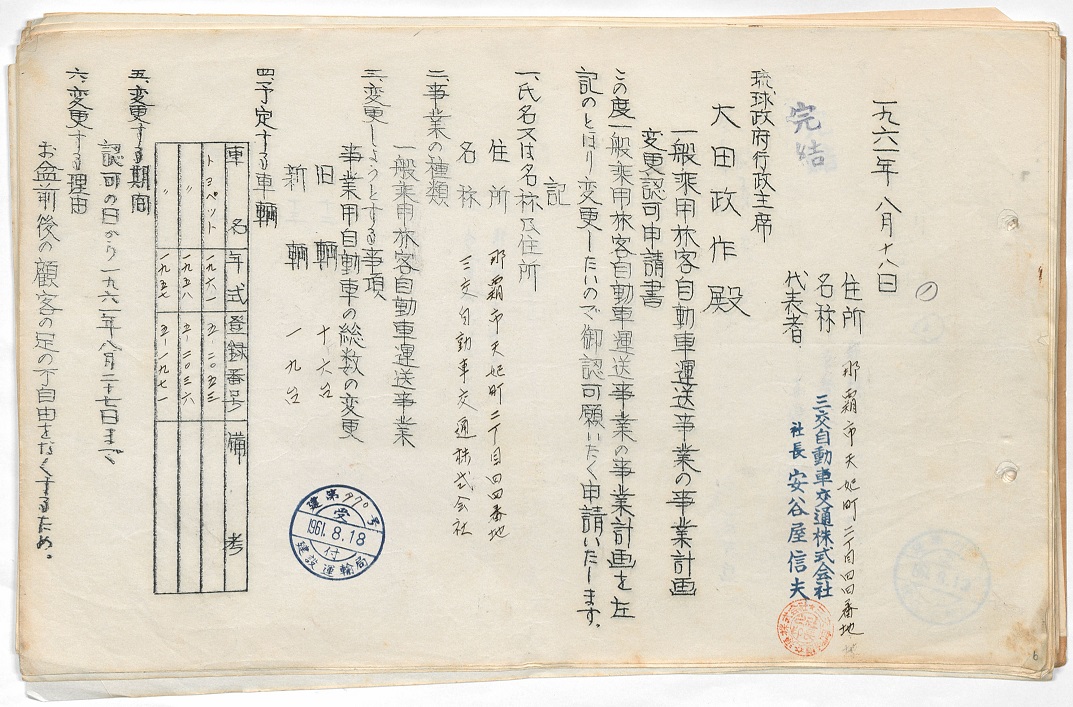 一九六一年八月十八日
完結
住所 那覇市天妃町二丁目四四番地
名称 三交自動車交通株式会社
代表者 社長 安谷屋信夫
琉球政府行政主席
大田政作殿
一般乗用旅客自動車運送事業の事業計画
変更認可申請書
この度一般乗用旅客自動車運送事業の事業計画を左
記のとほり変更したいので御認可願いたく申請いたします。
記
一、氏名又は名称及住所
住所 那覇市天妃町二丁目四四番地
名称 三交自動車交通株式会社
二、事業の種類
一般乗用旅客自動車運送事業
三、変更しようとする事項
事業用自動車の総数の変更
旧輌 十六台
新輌 一九台
四、予定する車輌
車名 年式 登録番号 備考
トヨペット 一九六一 五-二〇五三
〃 一九五八 五-二〇三六
〃 一九五七 五-一九七一
五、変更する期間
認可の日から一九六一年八月二十七日まで
六、変更する理由
お盆前後の顧客の足の不自由をなくするため。
建第970号
受
1961.8.18
付
建設運輸局